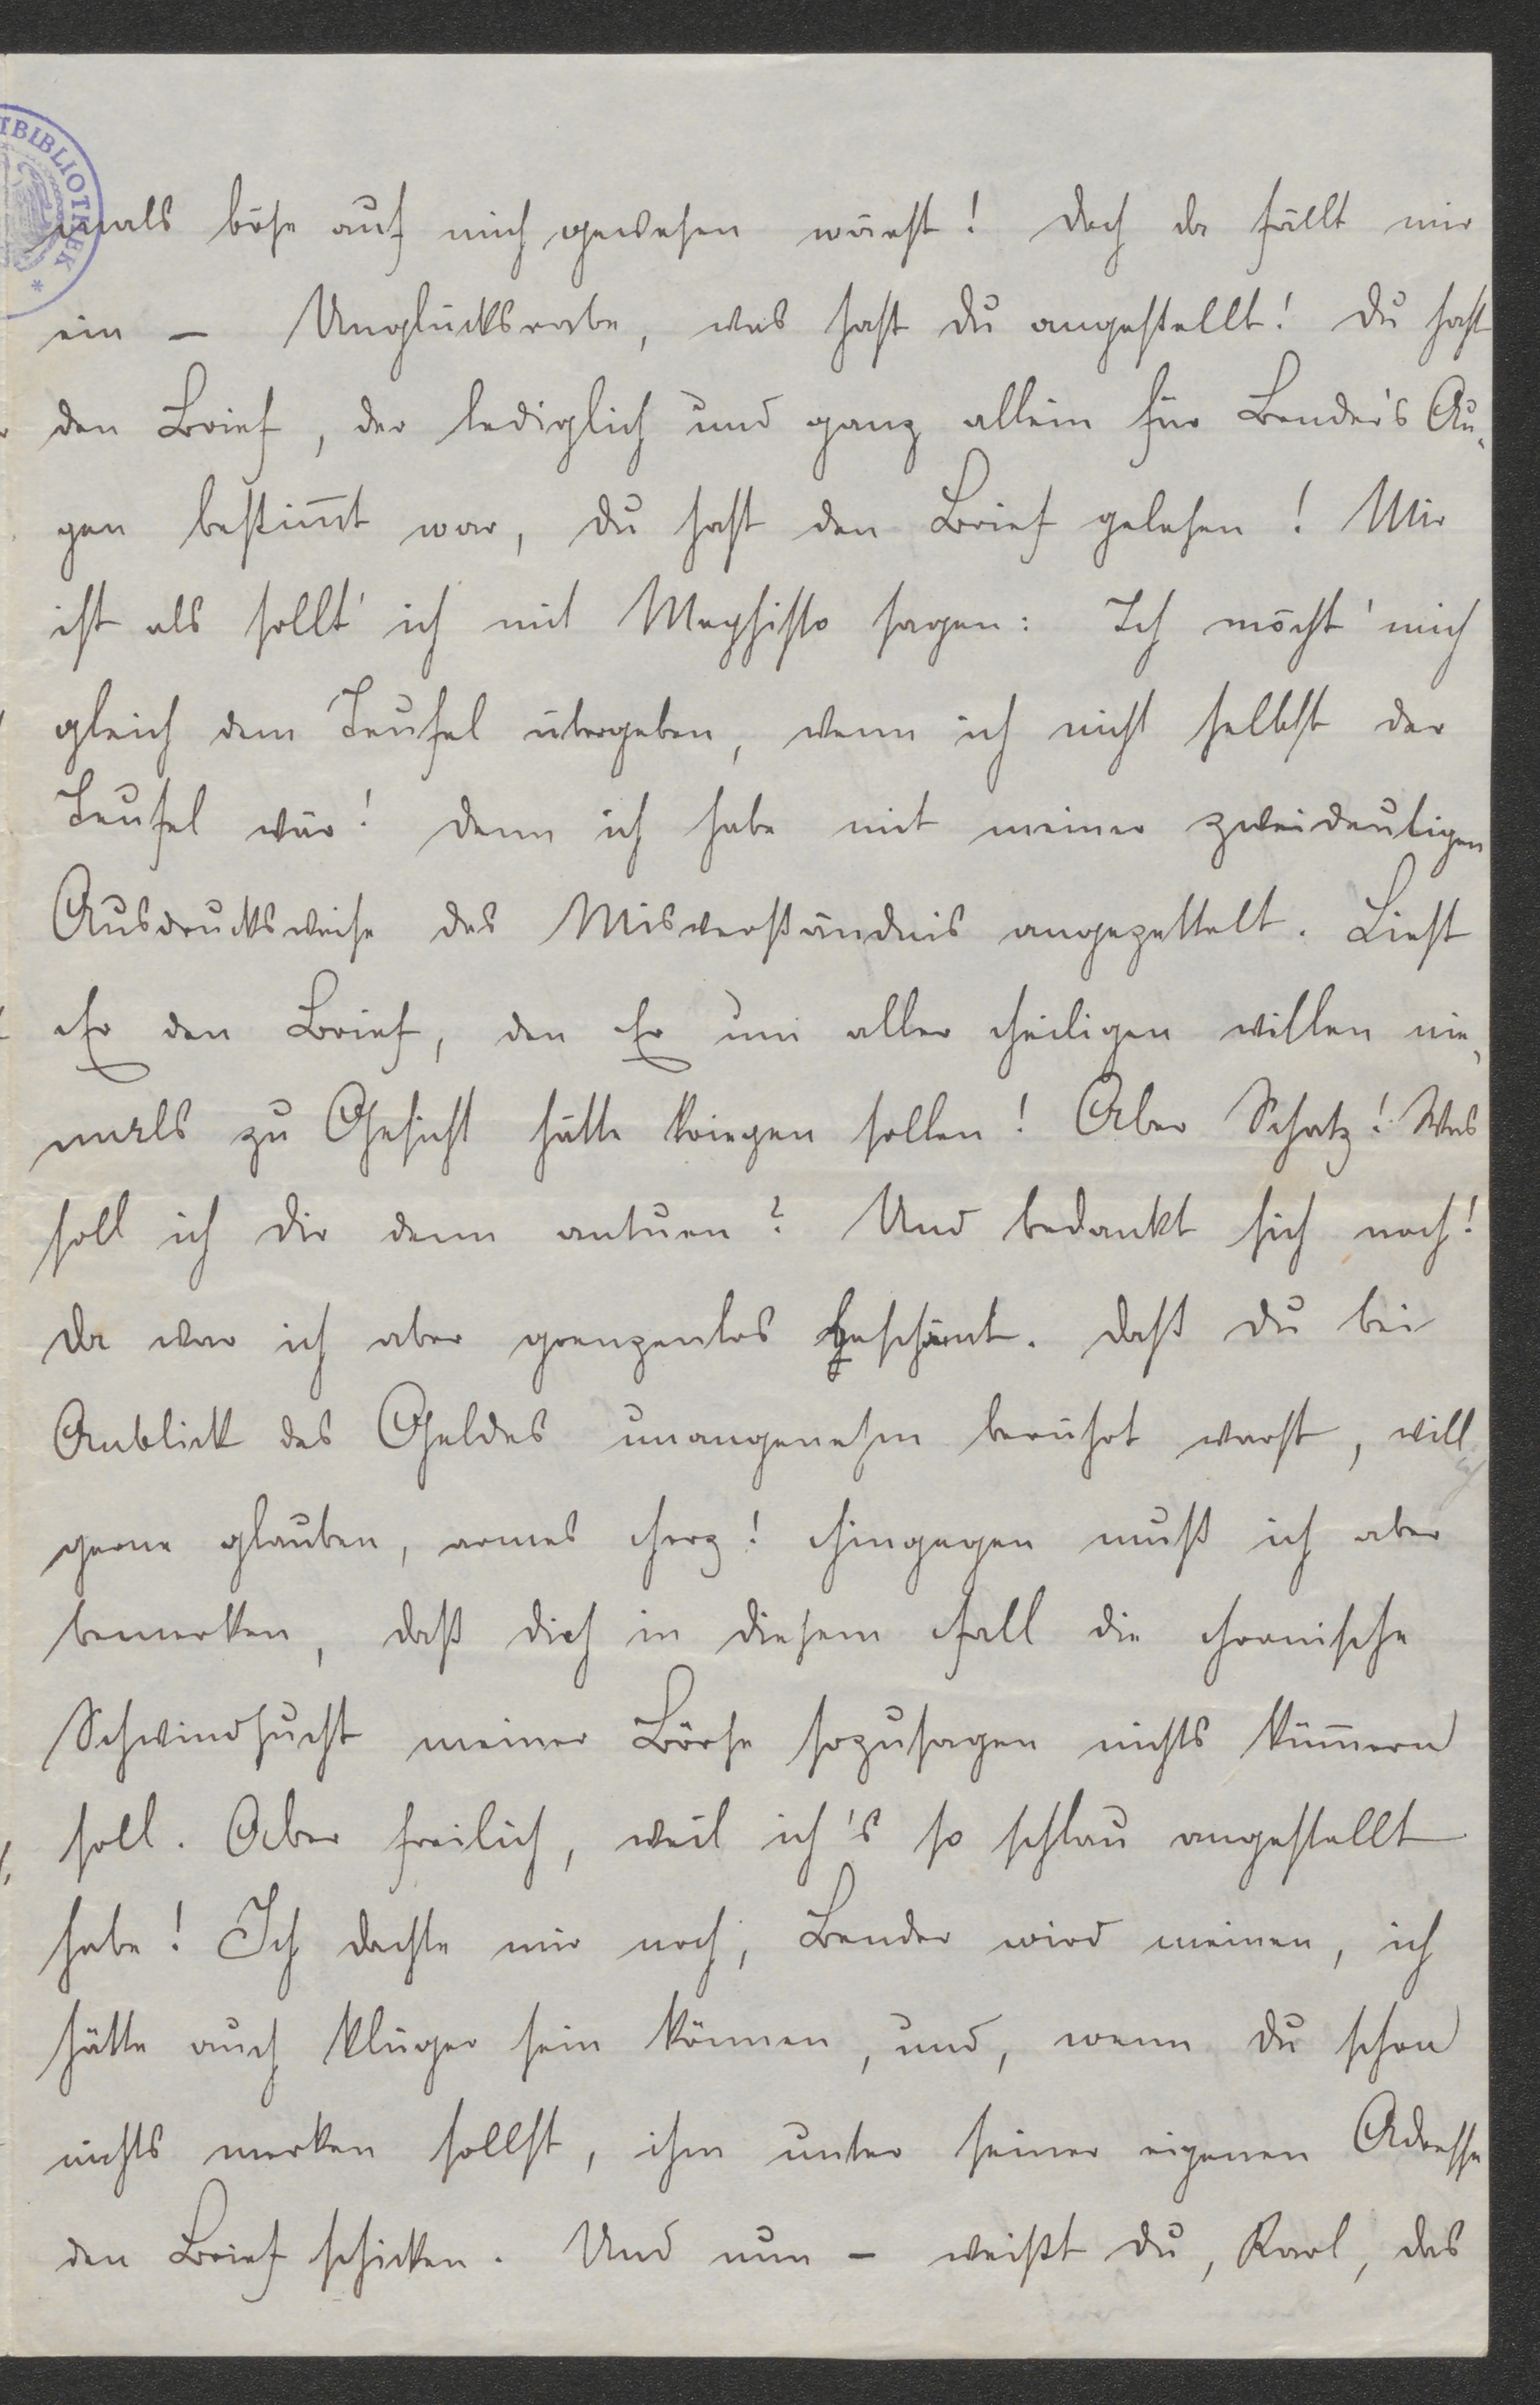 TBIBLIOTHEK *
mals böse auf mich gewesen wärest! Doch da fällt mir
ein – Unglücksrabe, was hast Du angestellt! Du hast
den Brief, der lediglich und ganz allein für Bender's Au-
gen bestim̅t war, Du hast den Brief gelesen! Mir
ist als sollt' ich mit Mephisto sagen: Ich möcht' mich
gleich dem Teufel übergeben, wenn ich nicht selbst der
Teufel wär! Denn ich habe mit meiner zweideutigen
Ausdrucksweise das Misverständnis angezettelt. Liest
Er den Brief, den Er um aller Heiligen willen nie-
mals zu Gesicht hätte kriegen sollen! Aber Schatz! Was
soll ich Dir denn antuen? Und bedankt sich noch!
Da war ich aber grenzenlos beschämt. Daß Du bei
Anblick des Geldes unangenehm berührt warst, will ich
gerne glauben, armes Herz! Hingegen muß ich aber
bemerken, daß Dich in diesem Fall die chronische
Schwindsucht meiner Börse sozusagen nichts küm̅ern
soll. Aber freilich, weil ich's so schlau angestellt
habe! Ich dachte mir noch, Bender wird meinen, ich
hätte auch klüger sein können, und, wenn Du schon
nichts merken sollst, ihm unter seiner eigenen Adresse
den Brief schicken. Und nun – weißt Du, Karl, das